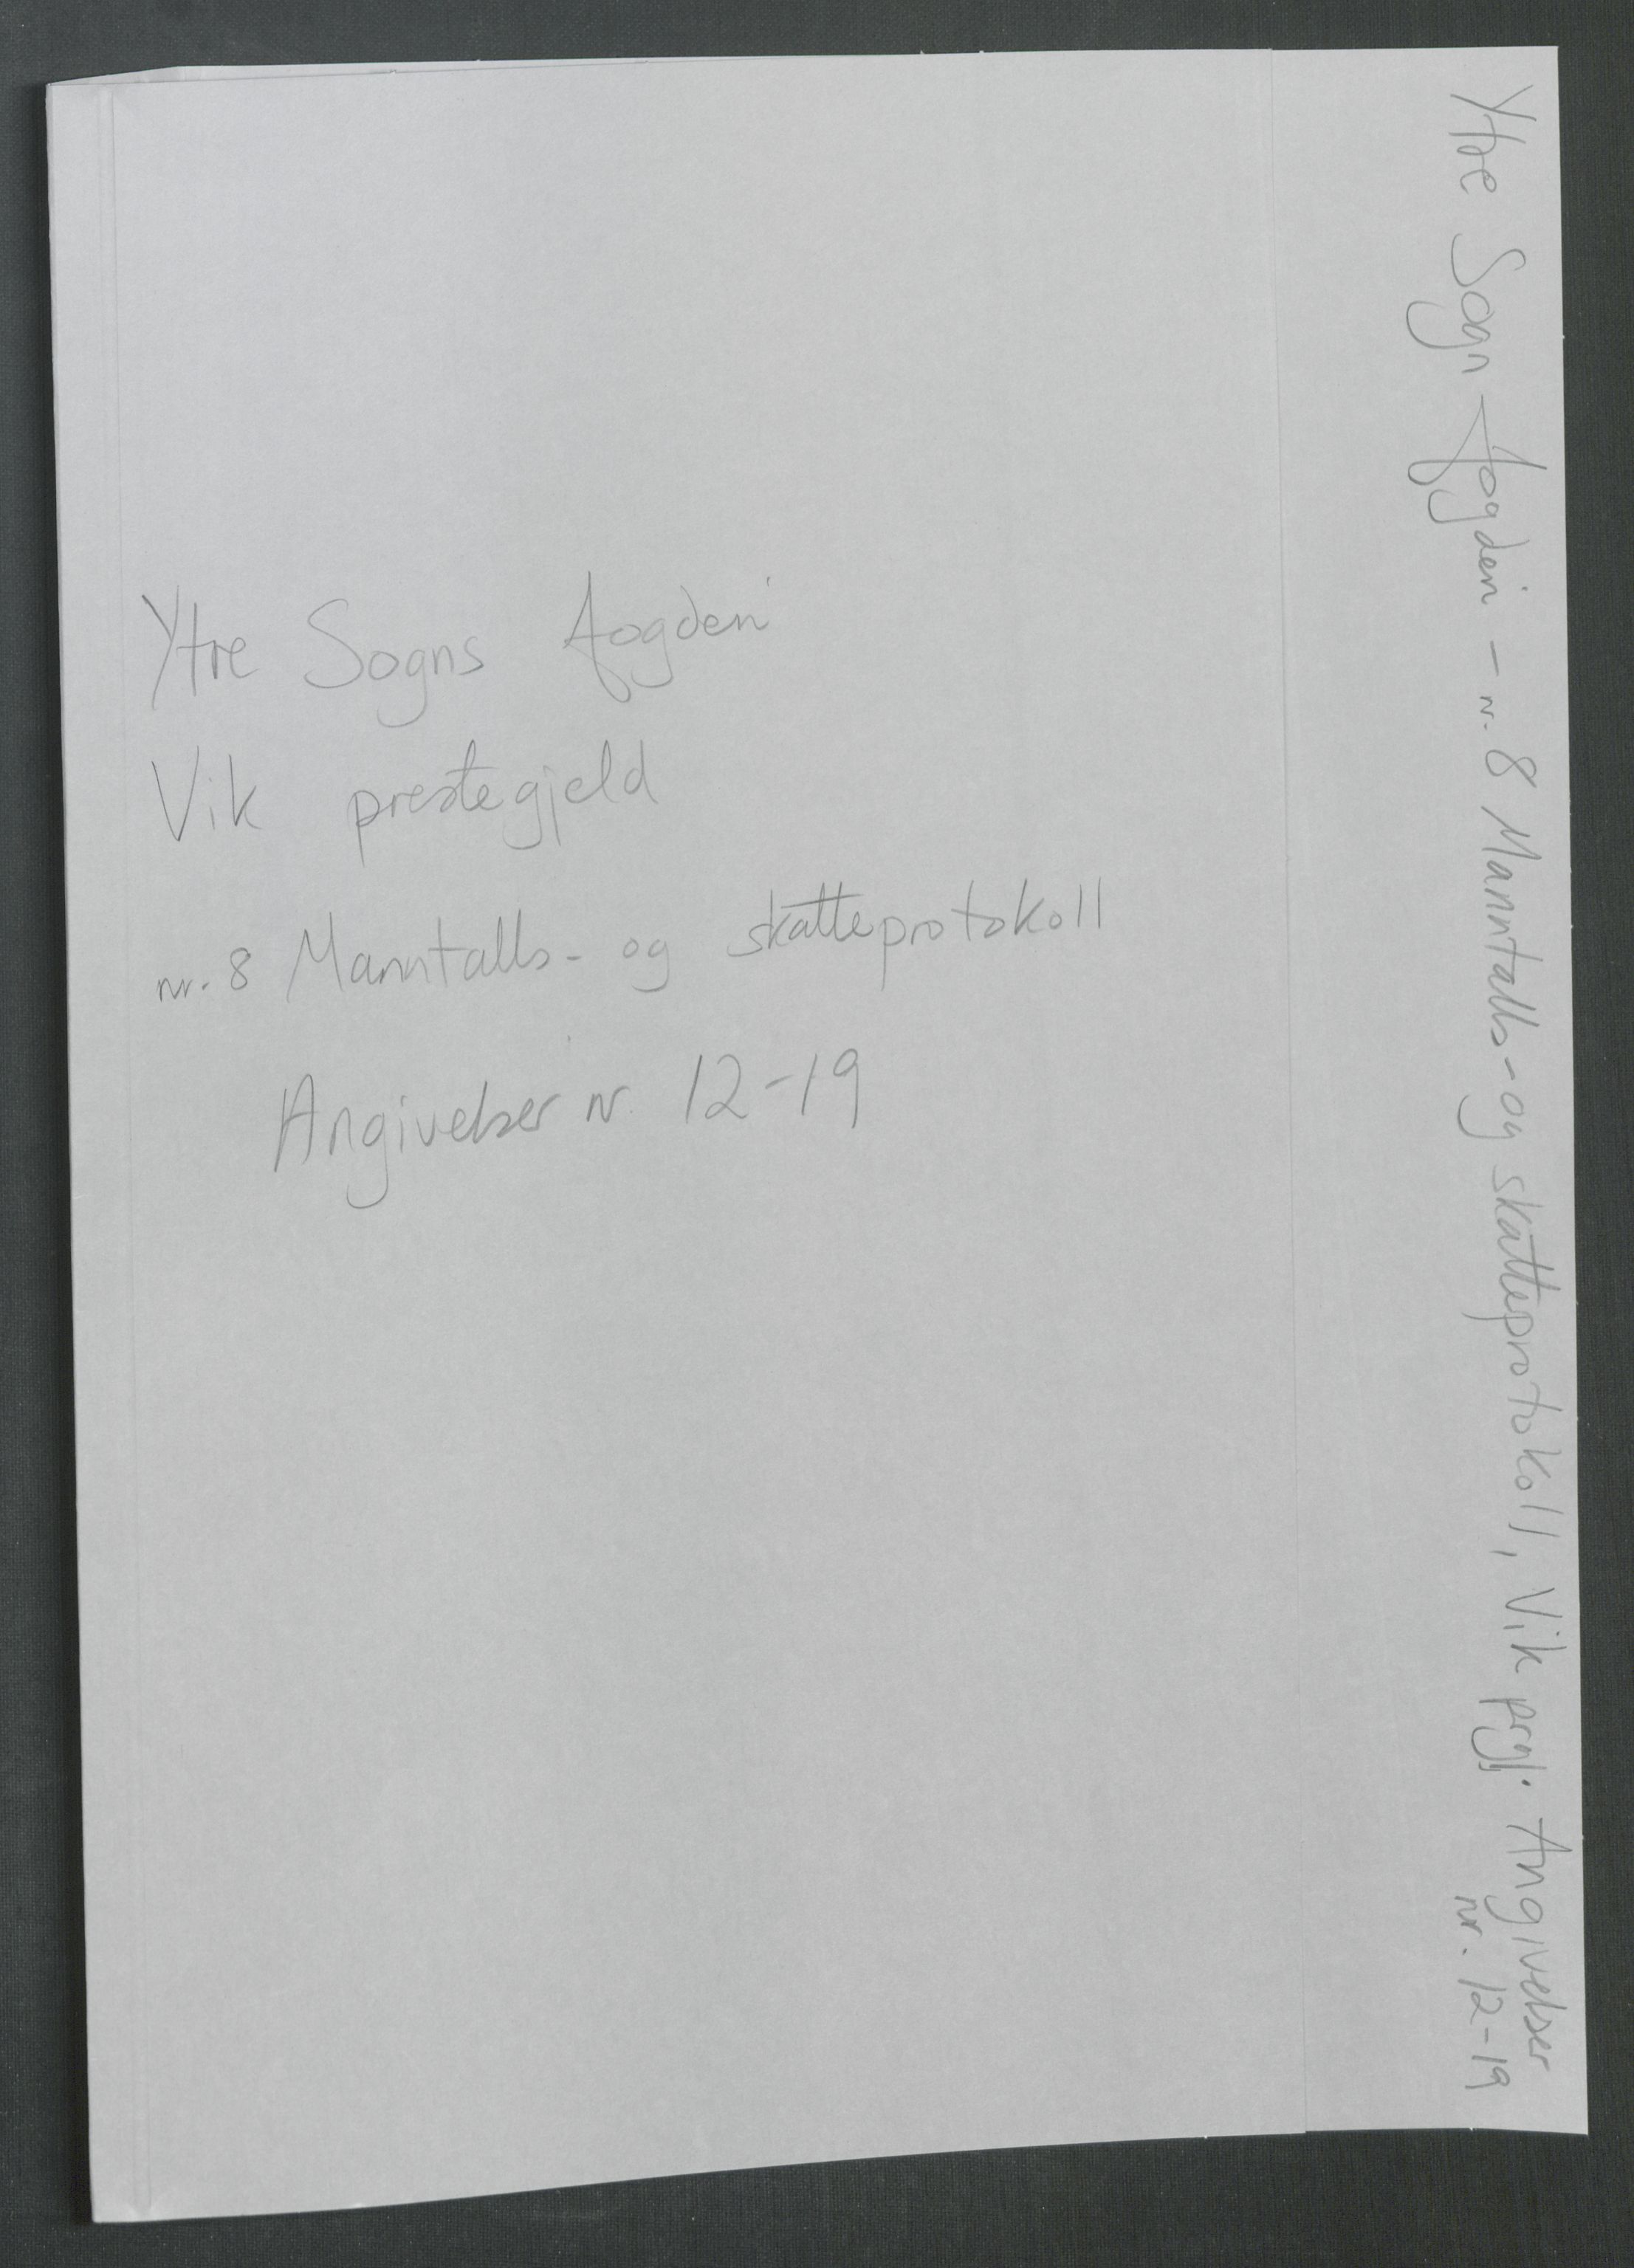 Ytre Sogns fogderi
Vik prestegjeld
nr. 8 Manntalls- og skatteprotokoll
Angivelser nr. 12-19
Ytre Sogn fogderi - nr. 8 Manntalls- og skatteprotokoll, Vik prgj. Angivelser
nr. 12-19